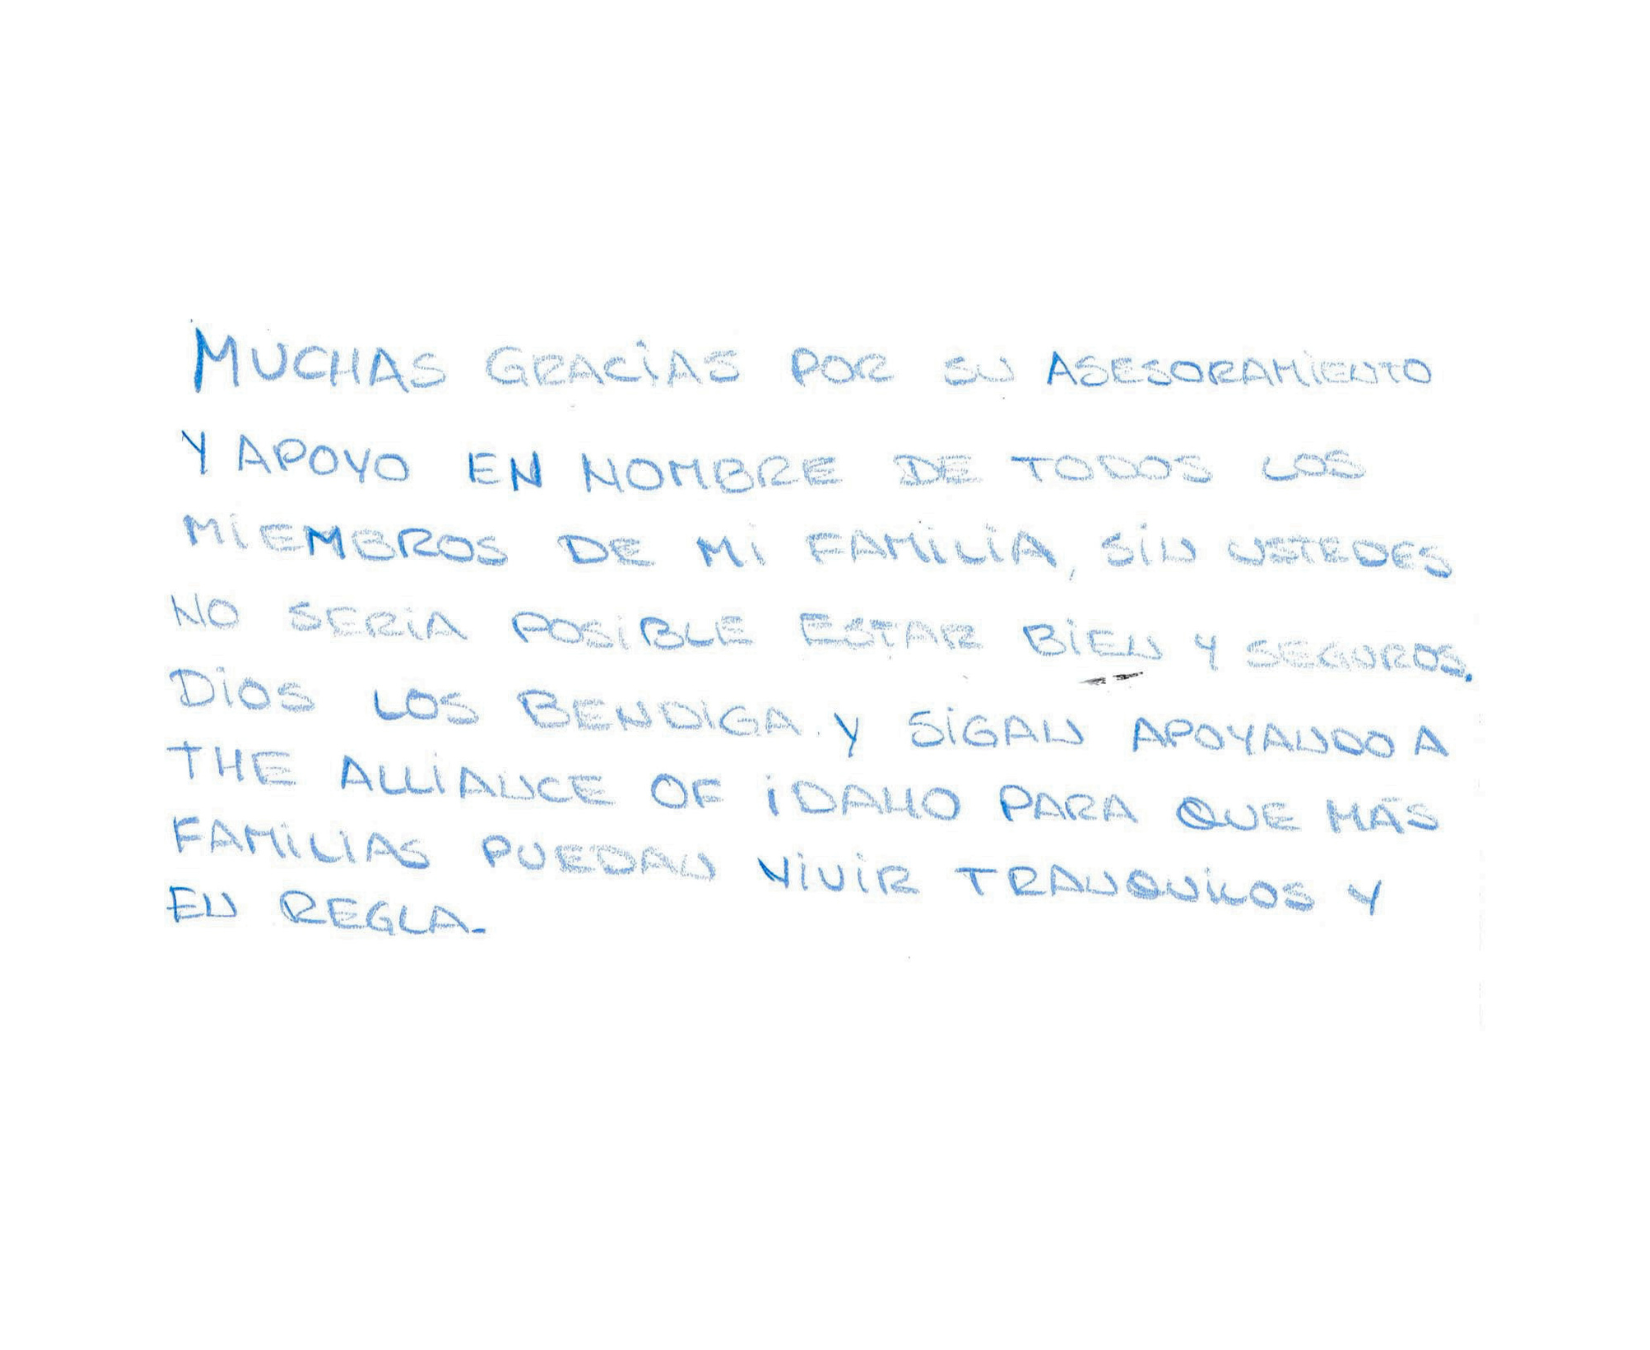 MUCHAS GRACIAS POR SU ASESORAMIENTO
Y APOYO EN NOMBRE DE TODOS LOS
MIEMBROS DE MI FAMILIA, SIN USTEDES
NO SERIA POSIBLE ESTAR BIEN Y SEGUROS.
DIOS LOS BENDIGA. Y SIGAN APOYANDO A
THE ALLIANCE OF IDAHO PARA QUE MÁS
FAMILIAS PUEDAN VIVIR TRANQUILOS Y
EN REGLA.